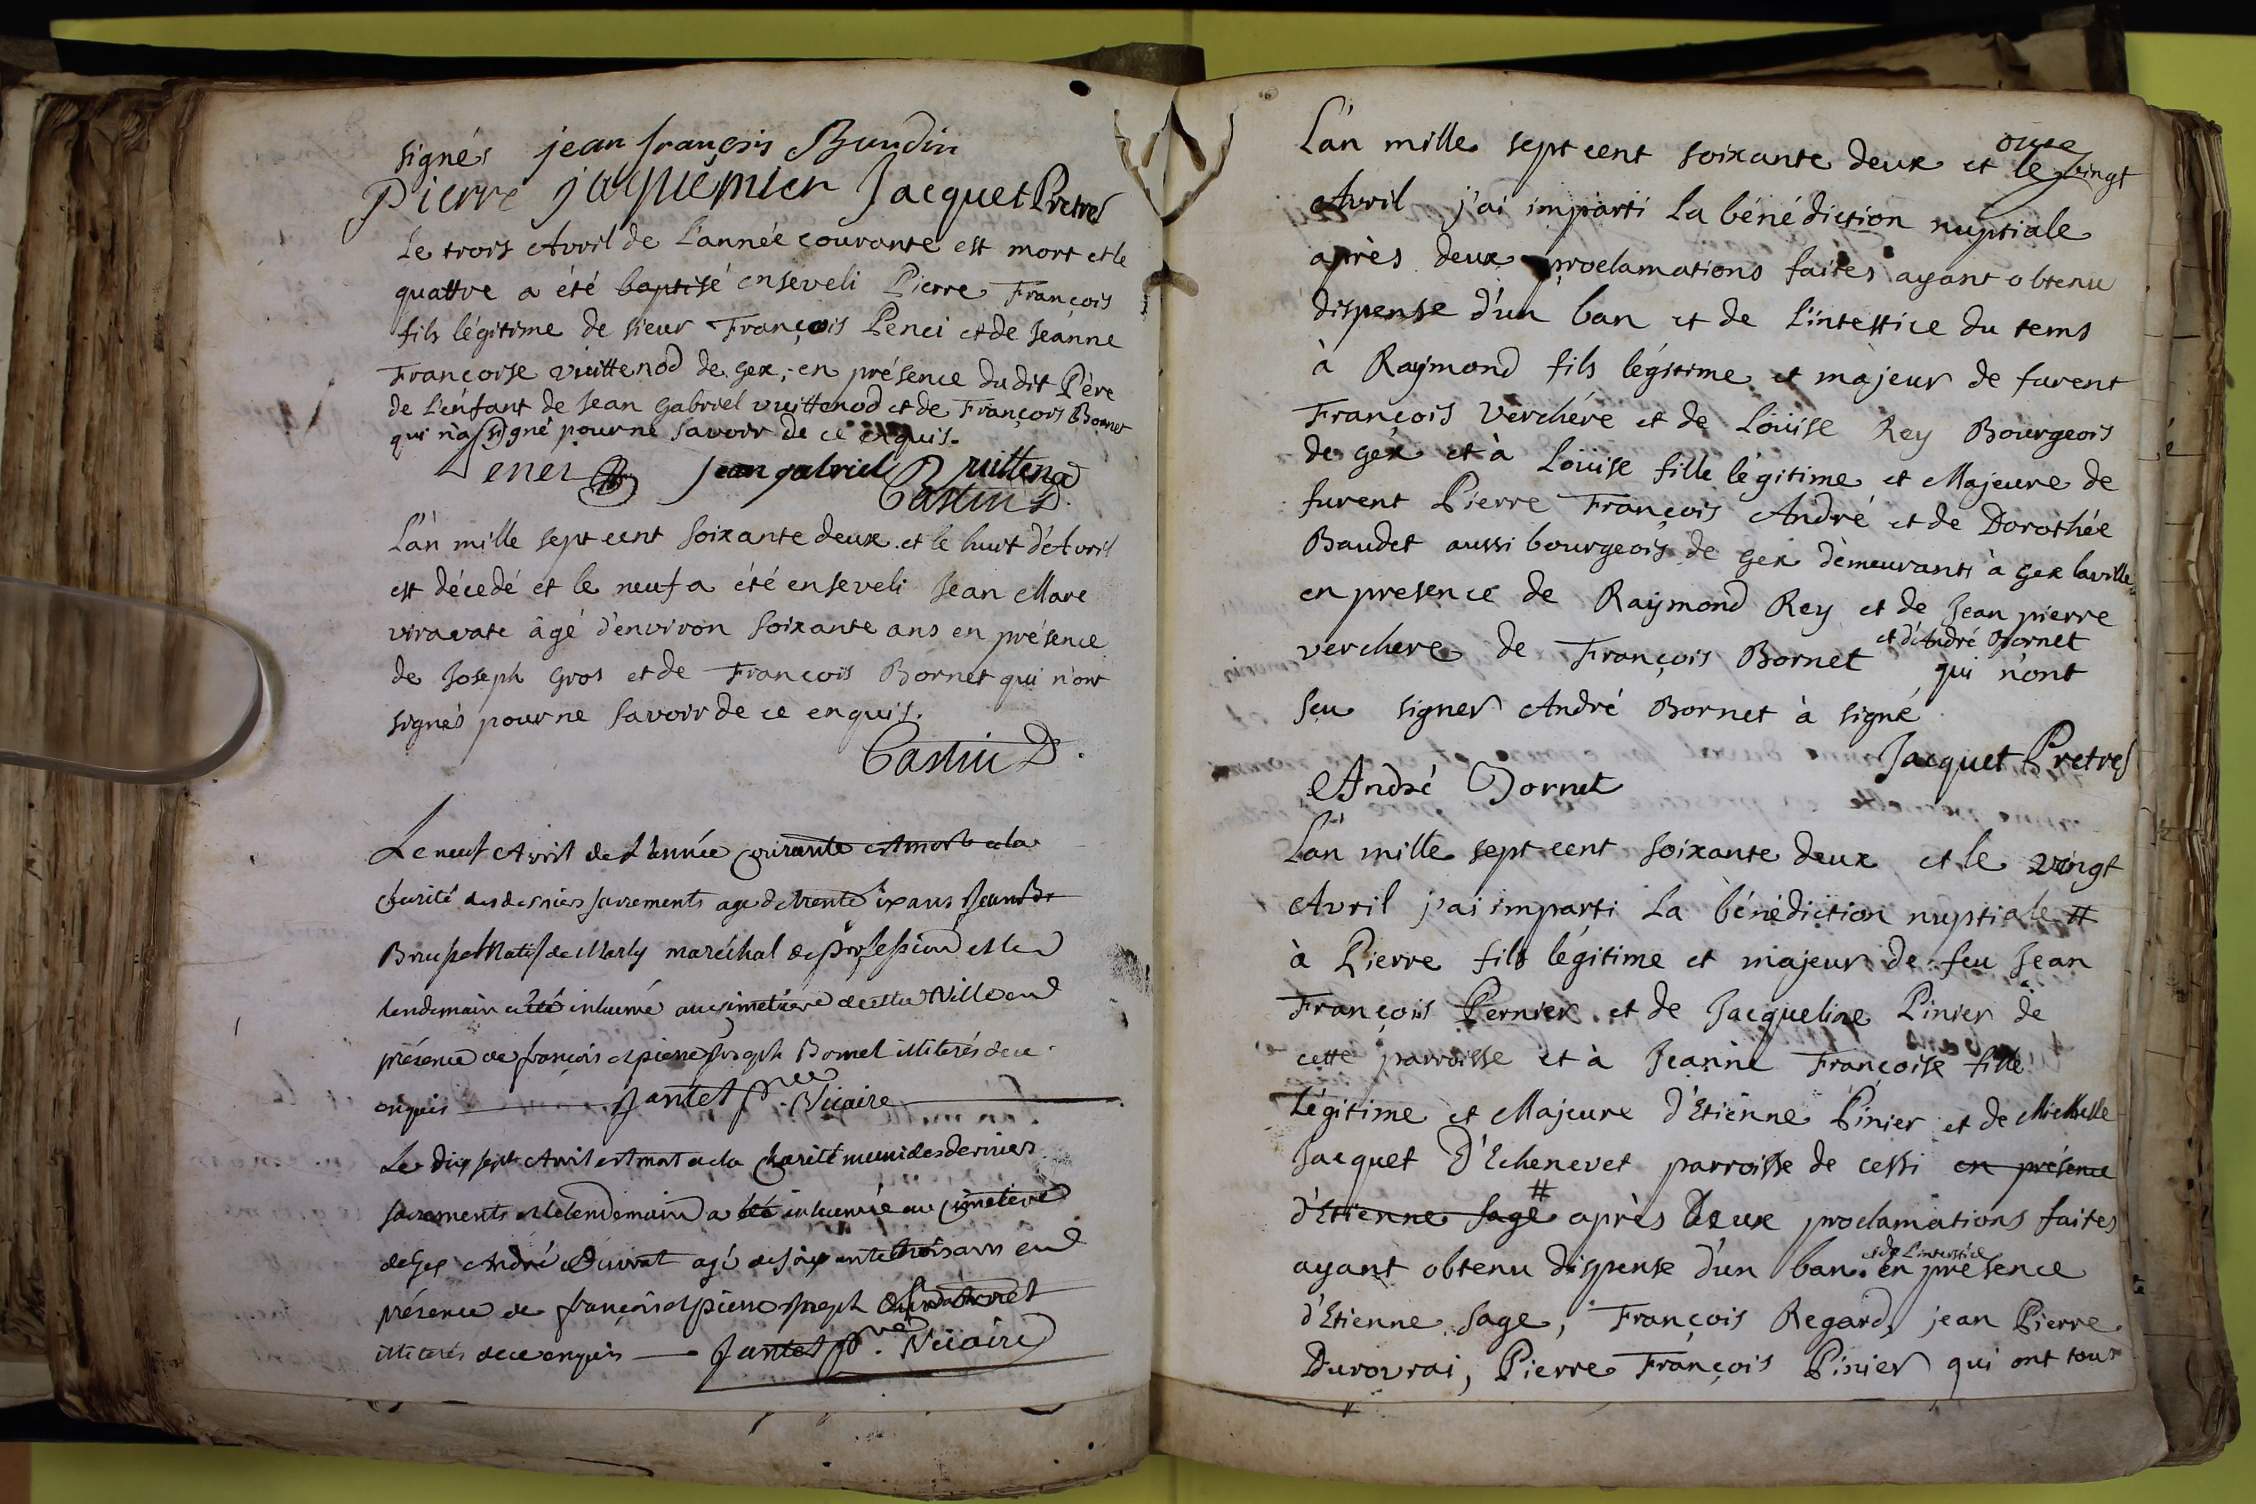 signés jean françois Baudin
Pierre jaquemier Jacquet Pretre
Le trois Avril de L'année courante est mort et le
quattre a été baptisé enseveli Pierre François
fils légitime de sieur François Penei et de Jeanne
Françoise vuittenod de gex, en présence du dit Père
de L'enfant de Jean Gabriel vuittenod et de François Bornet
qui n'a signé pour ne savoir de ce enquis.
Penei jean gabriel vuittenod
Castin D.
L'an mille sept cent soixante deux et le huit d'Avril
est décedé et le neuf a été enseveli Jean Marc
viravate âgé d'environ soixante ans en présence
de Joseph Gros et de François Bornet qui n'ont
signés pour ne savoir de ce enquis.
Castin D.
Le neuf Avril de L'année courante est mort a la
charité des derniers sacrements age de trente six ans Jean
natif de Marly maréchal de profession et le
lendemain a été inhumé au cimetière de cette Ville en
présence de françois et pierre joseph Bornet illiterés de ce
enquis Jantet p.re Vicaire
Le dix sept Avril est mort a la charité muni des derniers
sacrements et le lendemain a été inhumé au cimetière
de Gex André agé de soixante trois ans en
présence de françois et pierre joseph Bornet
illiterés de ce enquis Jantet p.re Vicaire
L'an mille sept cent soixante deux et le vingt onze
Avril j'ai imparti la bénédiction nuptiale
après deux proclamations faites ayant obtenu
dispense d'un ban et de L'intestice du tems
à Raymond fils légitime et majeur de furent
François Verchére et de Loüise Rey Bourgeois
de gex et à Loüise fille légitime et Majeure de
furent Pierre François André et de Dorothée
Baudet aussi bourgeois de gex demeurants à gex la ville
en presence de Raymond Rey et de Jean pierre
verchere de François Bornet et d'André Bornet qui n'ont
sçu signer André Bornet à signé
Jacquet Pretre
André Bornet
L'an mille sept cent soixante deux et le vingt
Avril j'ai imparti la bénédiction nuptiale #
à Pierre fils légitime et majeur de feu Jean
François Pernier et de Jacqueline Pinier de
cette parroisse et à Jeanne Françoise fille
Légitime et Majeure d'Etienne Pinier et de Michelle
Jacquet D'Echenevet parroisse de cessi en présence
d'Etienne Sage # après deux proclamations faites
ayant obtenu dispense d'un ban et de L'interstice en présence
d'Etienne Sage, François Regard, jean Pierre
Durovrai, Pierre François Pinier qui ont tous